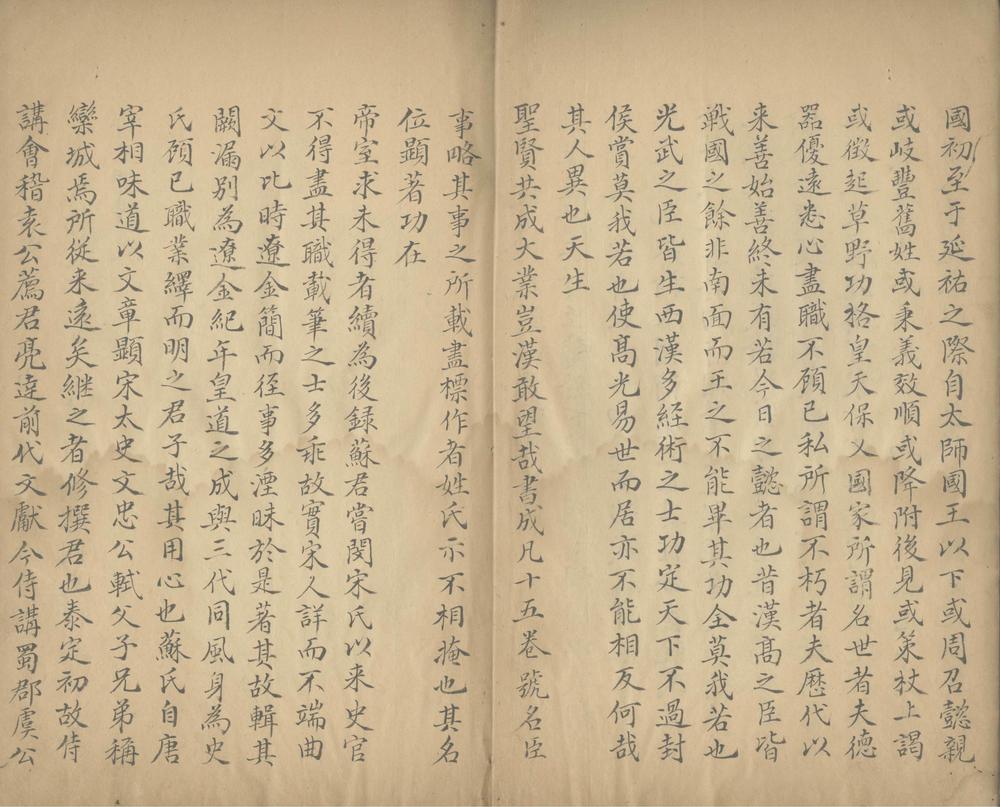 國初至于延祐之際自太師國王以下或周召懿親
或岐豐舊姓或秉義效順或降附後見或策杖上謁
或徵起草野功格皇天保乂國家所謂名世者夫德
器優遠悉心盡職不顧已私所謂不朽者夫歷代以
来善始善終未有若今日之懿者也昔漢髙之臣皆
戰國之餘非南面而王之不能畢其功全莫我若也
光武之臣皆生西漢多経術之士功定天下不過封
侯賞莫我若也使髙光易世而居亦不能相反何哉
其人異也天生
聖賢共成大業豈漢敢望哉書成凡十五卷號名臣
事略其事之所載盡標作者姓氏示不相掩也其名
位顯著功在
帝室求未得者續為後録蘇君嘗閔宋氏以来史官
不得盡其職載筆之士多乖故實宋人詳而不端曲
文以比時遼金簡而徑事多湮昧於是著其故輯其
闕漏別為遼金紀年皇道之成與三代同風身為史
氏顧已職業繹而明之君子哉其用心也蘇氏自唐
宰相味道以文章顯宋太史文忠公軾父子兄弟稱
欒城焉所従来遠矣継之者修撰君也泰定初故侍
講會稽袁公薦君亮達前代文獻今侍講蜀郡虞公